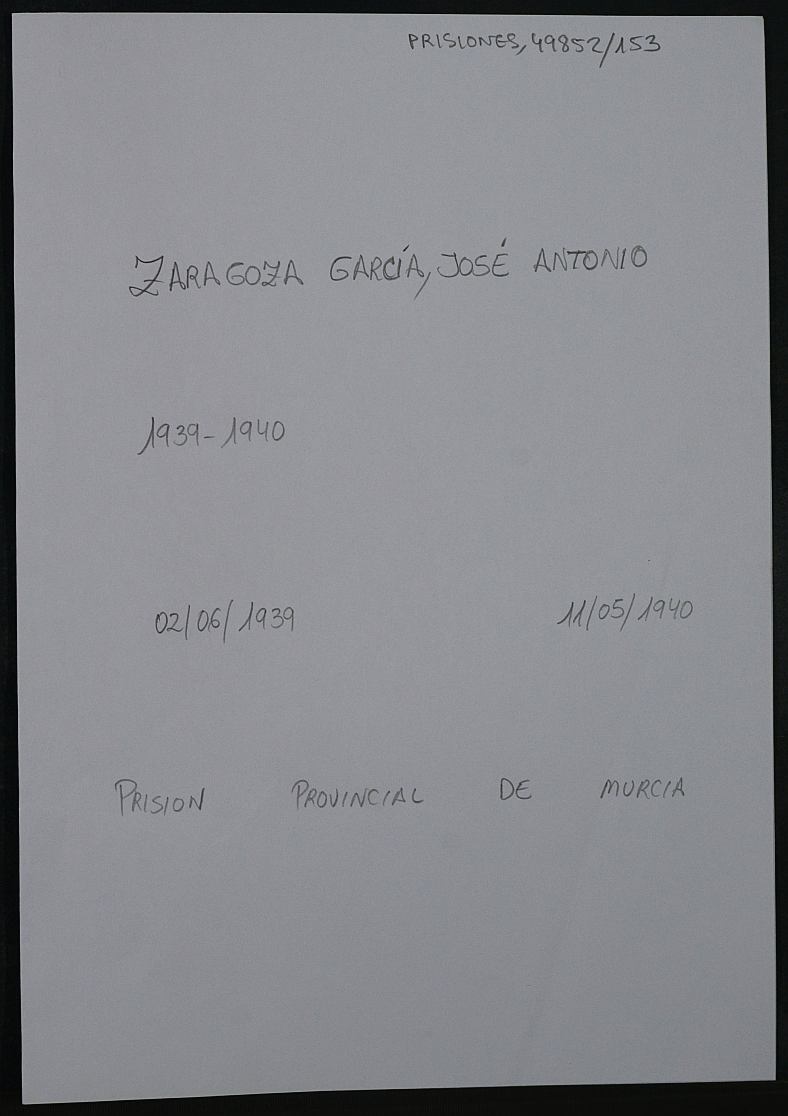 PRISIONES, 49852/153
ZARAGOZA GARCÍA, JOSÉ ANTONIO
1939-1940
02/06/1939 11/05/1940
PRISION PROVINCIAL DE MURCIA